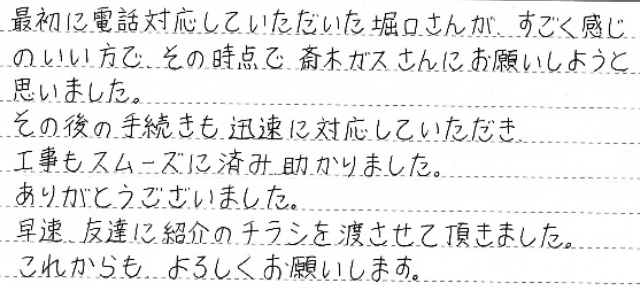 最初に電話対応していただいた堀口さんが、すごく感じ
のいい方で、その時点で斎木ガスさんにお願いしようと
思いました。
その後の手続きも迅速に対応していただき、
工事もスムーズに済み助かりました。
ありがとうございました。
早速、友達に紹介のチラシを渡させて頂きました。
これからも、よろしくお願いします。